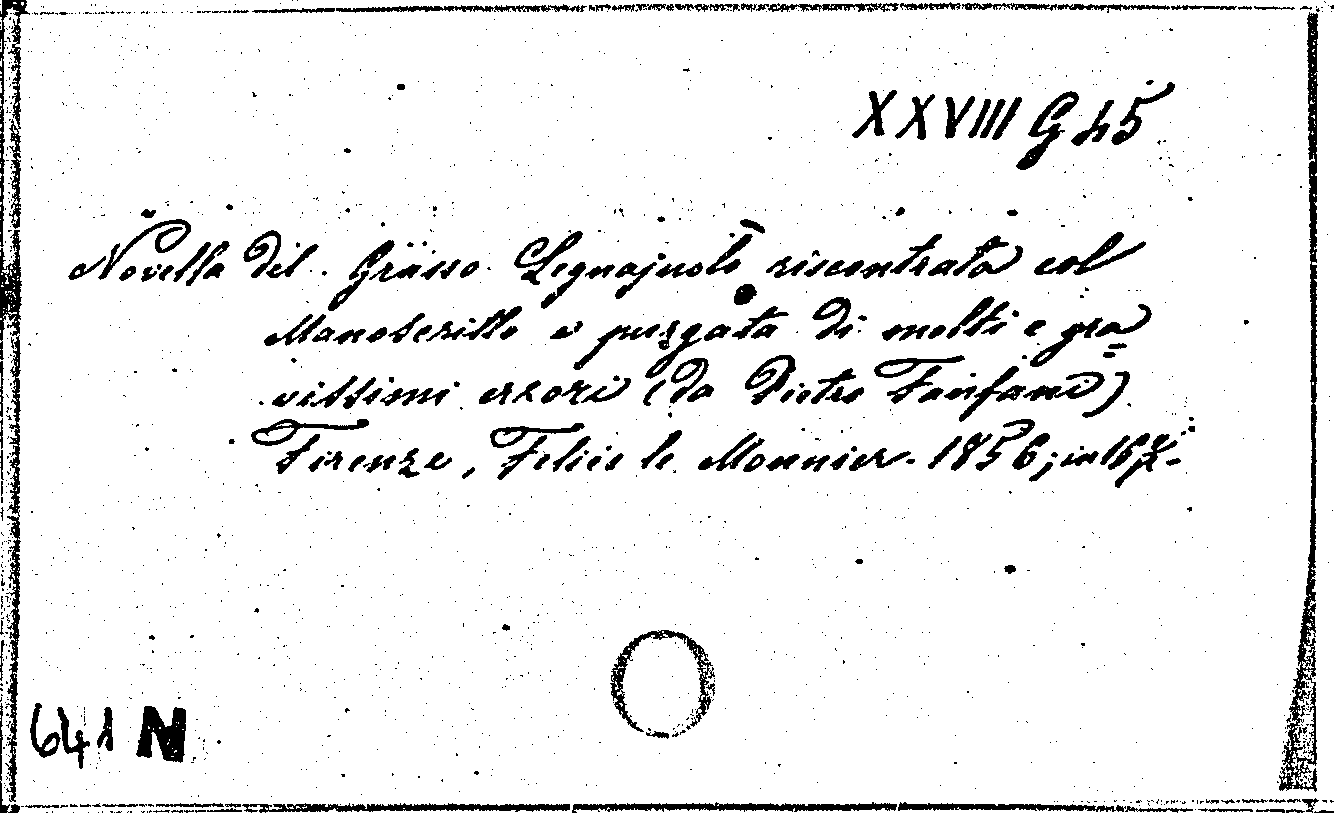 XXVIII G 45
Novella del Grasso Legnajuolo riscontrata col
Manoscritto e purgata di molti e gra=
vissimi errori (da Pietro Fanfani)
Firenze, Felice le Monnier. 1856; in 16.
641 N